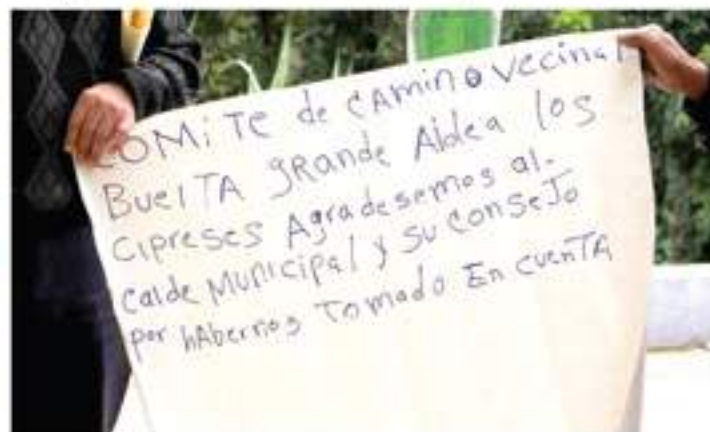 COMiTe de cAmino vecinal
BuelTA gRande Aldea los
cipreses Agradesemos al-
calde Municipal y su consejo
por hAbernos Tomado En cuenTA